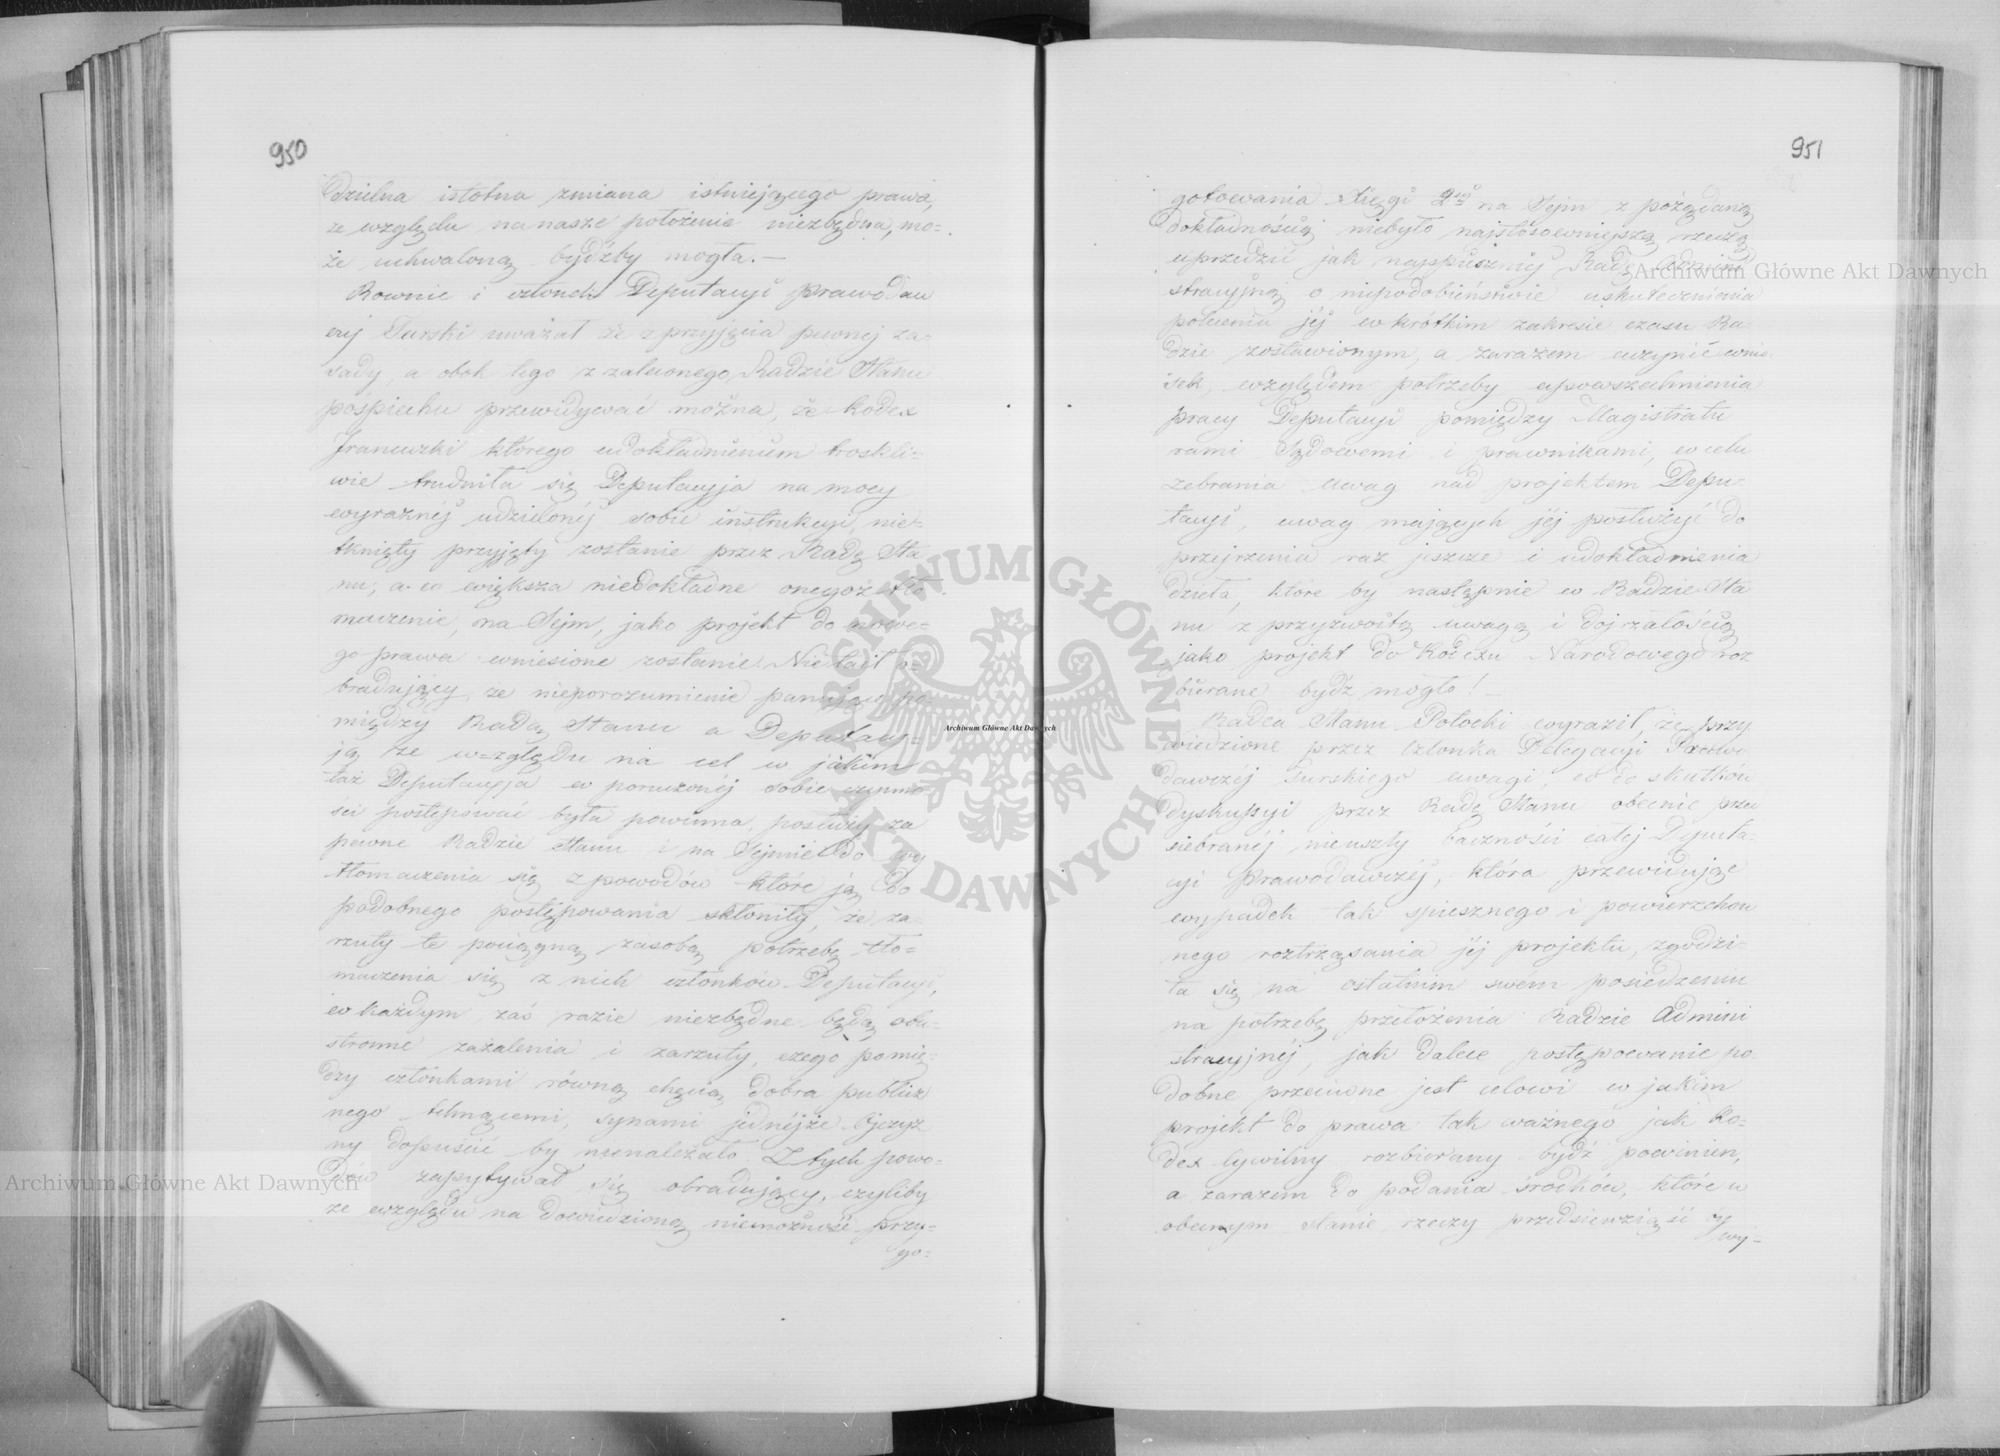 950
dzielna istotna zmiana istniejącego prawa,
ze względu na nasze położenie niezbędna, mo-
że uchwaloną bydźby mogła. —
Rownie i członek Deputacyi Prawodaw
czej Turski uważał że z przyjęcia pewnej za-
sady, a obok tego z zaleconego Radzie Stanu
pośpiechu przewidywać można, że kodex
francuzki którego udokładnieniem troskli-
wie trudniła się Deputacyja na mocy
wyraźnéj udzielonéj sobie instrukcyi, nie-
tknięty przyjęty zostanie przez Radę Sta
nu, a co większa niedokładne onegoż tło-
maczenie, na Sejm, jako projekt do nowe-
go prawa wniesione zostanie. Nie taił o-
bradujący, że nieporozumienie panujące po-
między Radą Stanu a Deputacy-
ją ze względu na cel w jakim
taż Deputacyja w poruczonéj sobie czynno-
ści postępować była powinna, posłuży za
pewne Radzie Stanu i na Sejmie do wy
tłomaczenia się z powodów które ją do
podobnego postępowania skłoniły, że za-
rzuty te pociągną zasobą potrzebę tło-
maczenia się z nich członków Deputacyi,
w każdym zaś razie niezbędne będą obu-
stronne zażalenia i zarzuty, czego pomię-
dzy członkami równą chęcią dobra publicz
nego tchnącemi, synami jednéjże Ojczyz
ny dopuścić by nienależało. Z tych powo-
dów zapytywał się obradujący, czyliby
ze względu na dowiedzioną niemożność przy-
go-
951
gotowania Księgi 2giéj na Sejm z pożądaną
dokładnością niebyło najstósowniejszą rzeczą
uprzedzić jak najspieszniéj Radę Admini
stracyjną o niepodobieństwie uskutecznienia
polecenia jéj w krótkim zakresie czasu Ra
dzie zostawionym, a zarazem uczynić wnio-
sek, względem potrzeby upowszechnienia
pracy Deputacyi pomiędzy Magistratu
rami Sądowemi i prawnikami, w celu
zebrania uwag nad projektem Depu-
tacyi, uwag mających jéj posłużyć do
przejrzenia raz jeszcze i udokładnienia
dzieła, które by następnie w Radzie Sta
nu z przyzwoitą uwagą i dojrzałością
jako projekt do Kodexu Narodowego roz
bierane bydź mogło! —
Radca Stanu Potocki wyraził, że przy
wiedzione przez Członka Delegacyi Prawo
dawczéj Turskiego uwagi, co do skutków
dyskussyi przez Radę Stanu obecnie przed
siebranéj nieuszły baczności całej Deputa-
cyi Prawodawczéj, która przewidując
wypadek tak spiesznego i powierzchow
nego roztrząsania jéj projektu, zgodzi-
ła się na ostatnim swém posiedzeniu
na potrzebę przełożenia Radzie Admini
stracyjnéj, jak dalece postępowanie po-
dobne przeciwne jest celowi w jakim
projekt do prawa tak ważnego jak Ko-
dex Cywilny rozbierany bydź powinien,
a zarazem do podania środków, które w
obecnym stanie rzeczy przedsiewziąść by
wy-
Archiwum Główne Akt Dawnych
Archiwum Główne Akt Dawnych
Archiwum Główne Akt Dawnych
ARCHIWUM GŁÓWNE AKT DAWNYCH